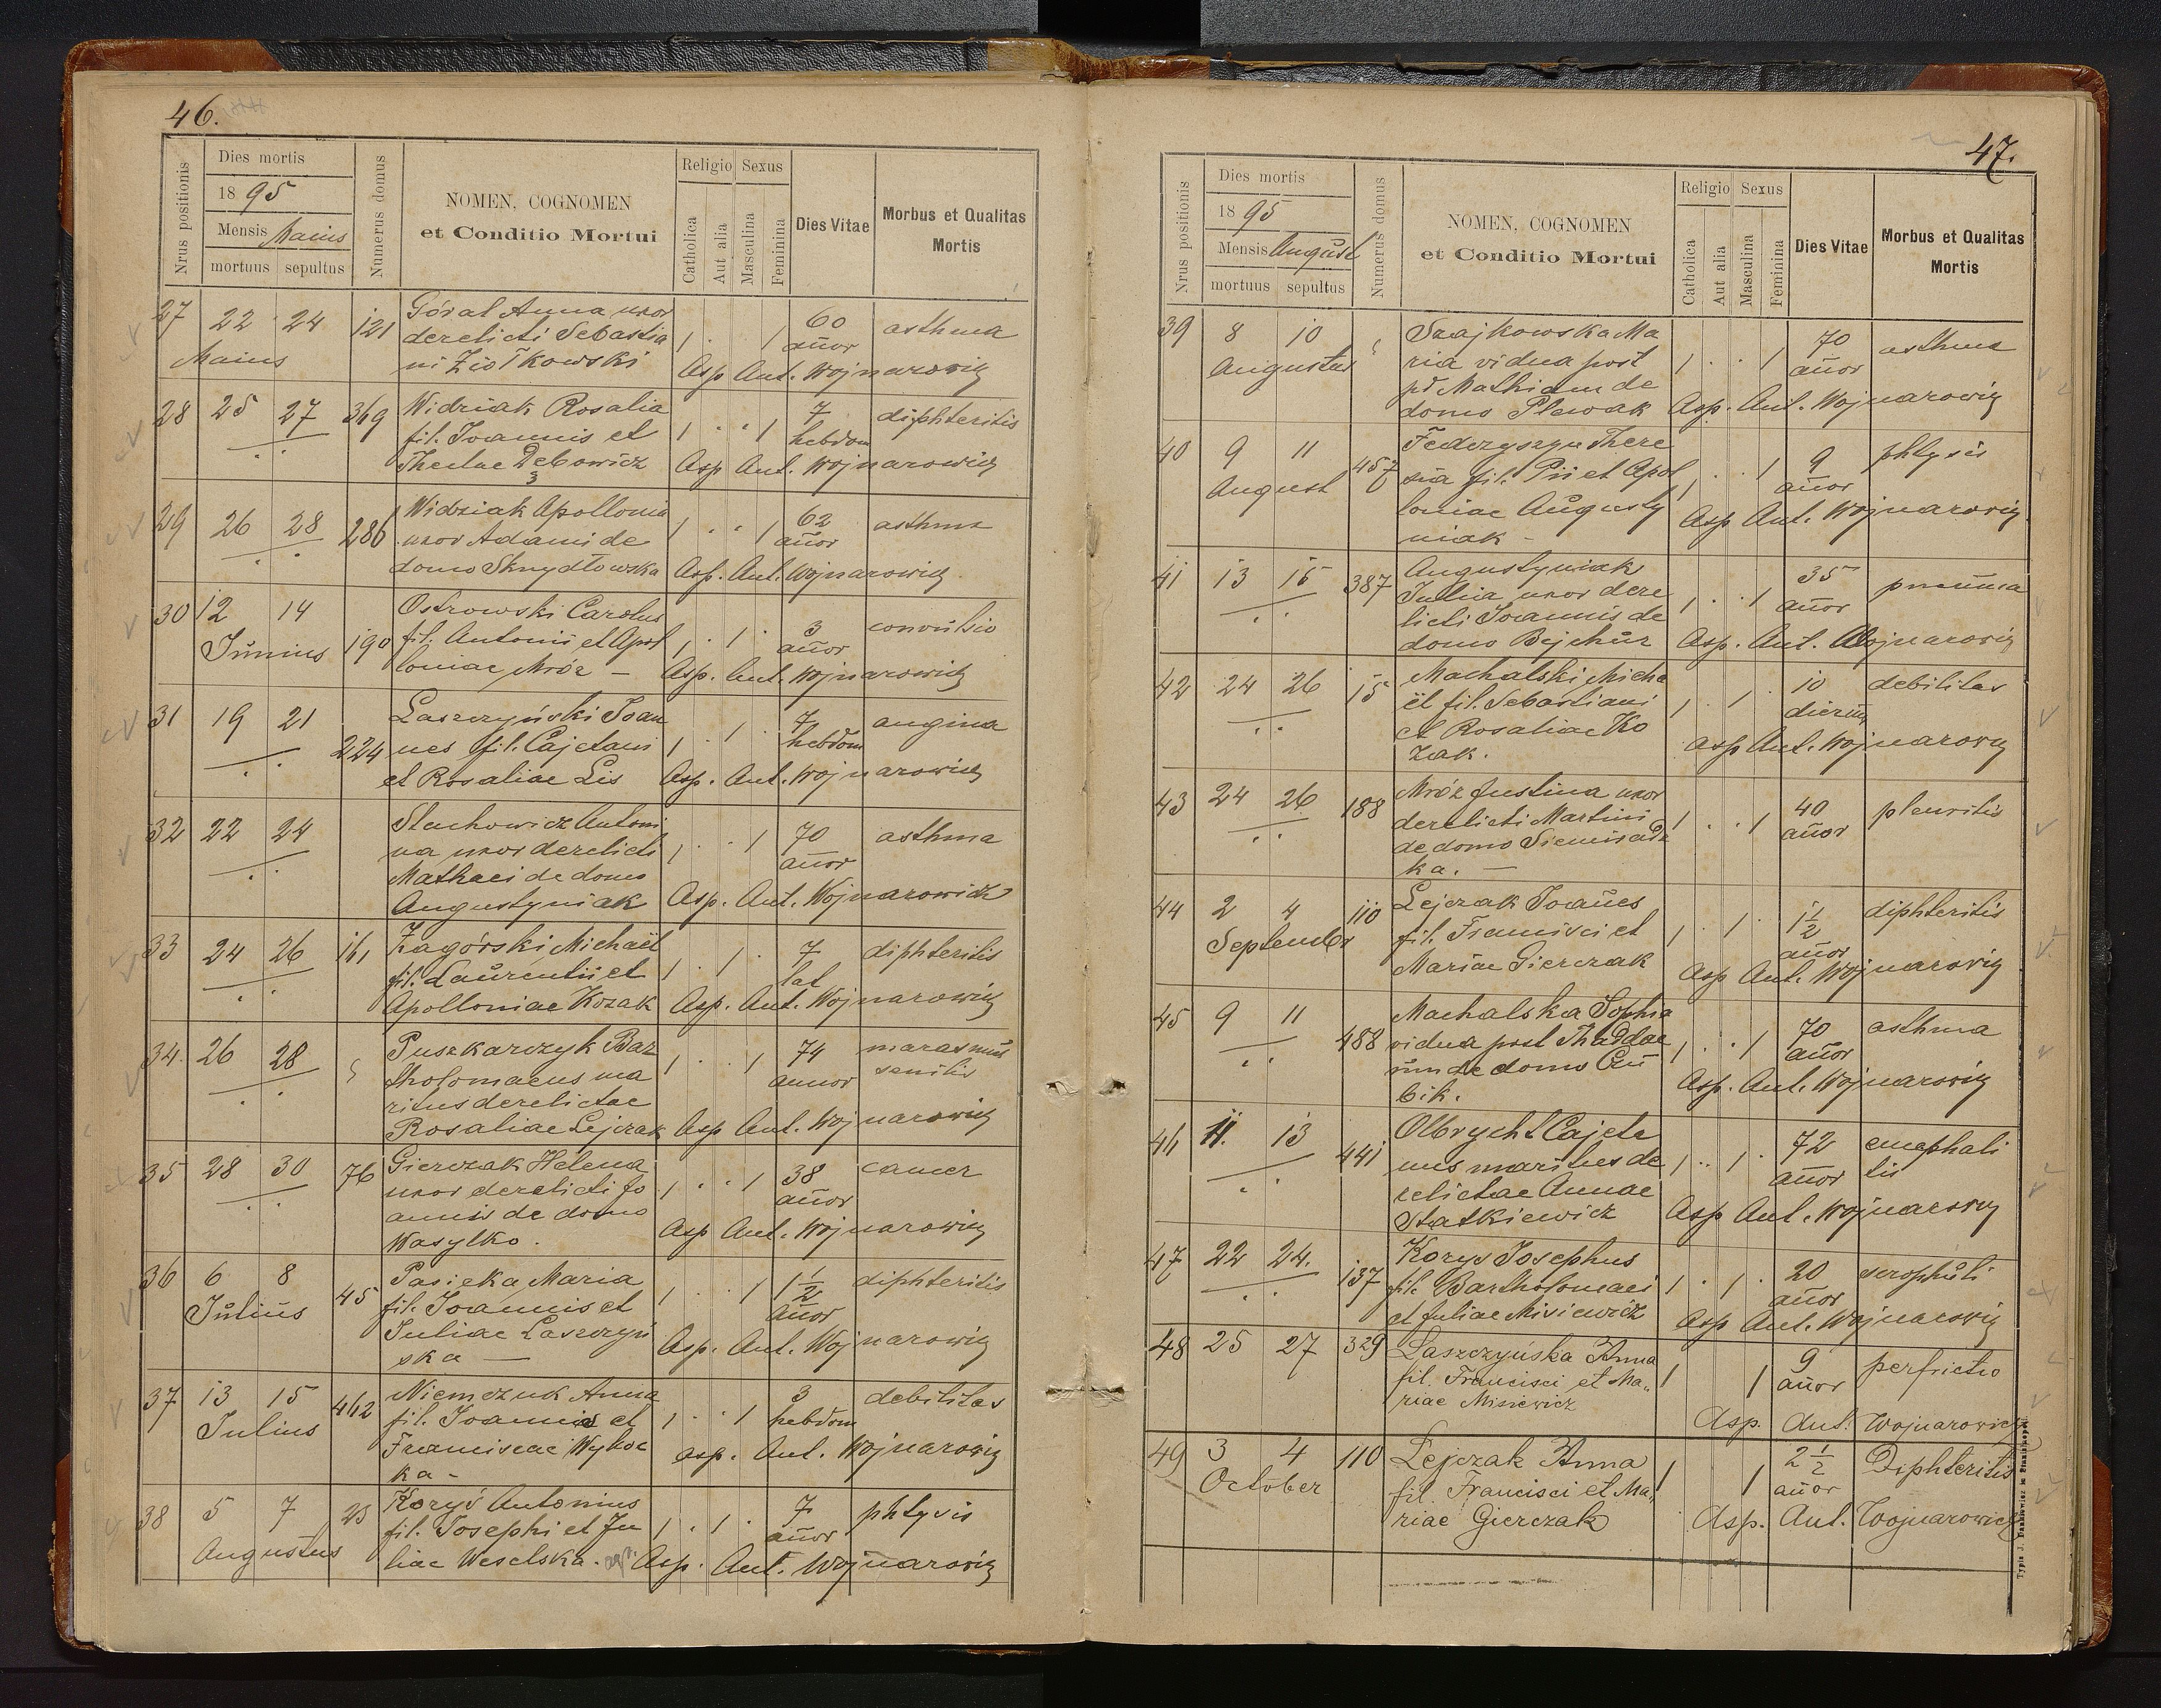 46.
Nrus positionis
Dies mortis
1895
Mensis Maius
mortuus sepultus
Numerus domus
NOMEN, COGNOMEN
et Conditio Mortui
Religio Sexus
Catholica
Aut alia
Masculina
Feminina
Dies Vitae
Morbus et Qualitas
Mortis
27 22 24 121 Góral Anna uxor
derelicti Sebastia
ni Ziołkowski
Maius
1 1 60
añor
asthma
Asp Ant. Wojnarowicz
28 25 27 369 Widziak Rosalia
fil. Joannis et
Theclae Dębowicz
1 1 7
hebdom
diphteritis
Asp Ant. Wojnarowicz
29 26 28 286 Widziak Apollonia
uxor Adami de
domo Skrydłowska
1 1 62
añor
asthma
Asp. Ant. Wojnarowicz
30 12 14
Június 190
Ostrowski Carolus
fil. Antonii et Apol
loniae Mróz —
1 1 3
añor
convulsio
Asp. Ant. Wojnarowicz
31 19 21 224
Laszczyński Joan
nes fil. Cajetani
et Rosaliae Lis
1 1 7
hebdom
angina
Asp. Ant. Wojnarowicz
32 22 24
Stachowicz Antoni
na uxor derelicti
Mathaei de domo
Augustyniak
1 1 70
añor
asthma
Asp. Ant. Wojnarowicz
33 24 26 161 Zagórski Michaël
fil. Laurentii et
Apolloniae Kozak
1 1 7
lat
diphteritis
Asp. Ant. Wojnarowicz
34. 26 28
Puszkarczyk Bar
tholomaeus ma
ritus derelictae
Rosaliae Lejczak
1 1 74
annor
marasmus
senilis
Asp Ant. Wojnarowicz
35 28 30 76 Gierczak Helena
uxor derelicti Jo
annis de domo
Wasylko.
1 1 38
añor
cancer
Asp Ant. Wojnarowicz
36 6 8
Július 45
Pasieka Maria
fil. Joannis et
Juliae Laszczyń
ska —
1 1 1 1/2
añor
diphteritis
Asp. Ant. Wojnarowicz
37 13 15
Julius 462
Niemczuk Anna
fil. Joannis et
Franciscae Wysoc
ka -
1 1 3
hebdom
debilitas
asp. Ant. Wojnarowicz
38 5 7 23
Augustus
Koryś Antonius
fil. Josephi et Ju
liae Weselska.
1 1 7
añor
phtysis
Asp. Ant. Wojnarowicz
47.
Nrus positionis
Dies mortis
1895
Mensis August
mortuus sepultus
Numerus domus
NOMEN, COGNOMEN
et Conditio Mortui
Religio Sexus
Catholica
Aut alia
Masculina
Feminina
Dies Vitae
Morbus et Qualitas
Mortis
39 8 10
Augustus
Szajkowska Ma
ria vidua post
Mathiam de
domo Plewak
1 1 70
añor
asthma
Asp. Ant. Wojnarowicz
40 9 11
August 457
Fedczyszyn There
sia fil. Pii et Apol
loniae Augusty
niak -
1 1 9
añor
phtysis
Asp Ant. Wojnarowicz
41 13 15 387
Augustyniak
Julia uxor dere
licti Joannis de
domo Bejchúr
1 1 35
añor
pneuma
Asp. Ant. Wojnarowicz
42 24 26 15
Machalski Micha
ël fil. Sebastiani
et Rosaliae Ko
zak.
1 1 10
dierum
debilitas
Asp Ant. Wojnarowicz
43 24 26 188
Mróz Justina uxor
derelicti Martini
de domo Siemisadz
ka. —
1 1 40
añor
pleuritis
44 2 4 110
September
Lejczak Joañes
fil. Francisci et
Mariae Gierczak
1 1 1 1/2
añor
diphteritis
Asp Ant. Wojnarowicz
45 9 11 488
Machalska Sophia
vidua post Thaddae
um de domo Cu
bik.
1 1 70
añor
asthma
Asp. Ant. Wojnarowicz
46 11. 13 441
Olbrycht Cajeta
nus maritus de
relictae Annae
Statkiewicz
1 1 72
añor
encephali
tis
Asp Ant. Wojnarowicz
47 22 24. 137
Korys Josephus
fil. Bartholomaei
et Juliae Misiewicz
1 1 20
añor
scrophuli
Asp Ant. Wojnarowicz
48 25 27 329 Laszczyńska Anna
fil. Francisci et Ma„
riae Misiewicz
1 1 9
añor
perfrictio
Asp. Ant. Wojnarowicz
49 3 4 110
October
Lejczak Anna
fil. Francisci et Ma„
riae Gierczak
1 1 2 1/2
añor
Diphteritis
Asp. Ant. Wojnarowicz